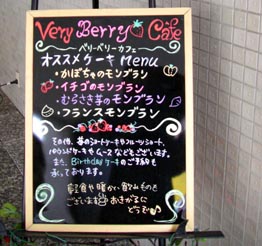 Very Berry Cafe
ベリーベリーカフェ
オススメケーキ Menu
・かぼちゃのモンブラン
・イチゴのモンブラン
・むらさき芋のモンブラン
・フランスモンブラン
その他、苺のショートケーキやフルーツショート、
パウンドケーキやムースなどもございます。
また、Birthdayケーキのご予約も
承っております。
軽食や暖かい飲みものも
ございます おきがるに
どうぞ♪